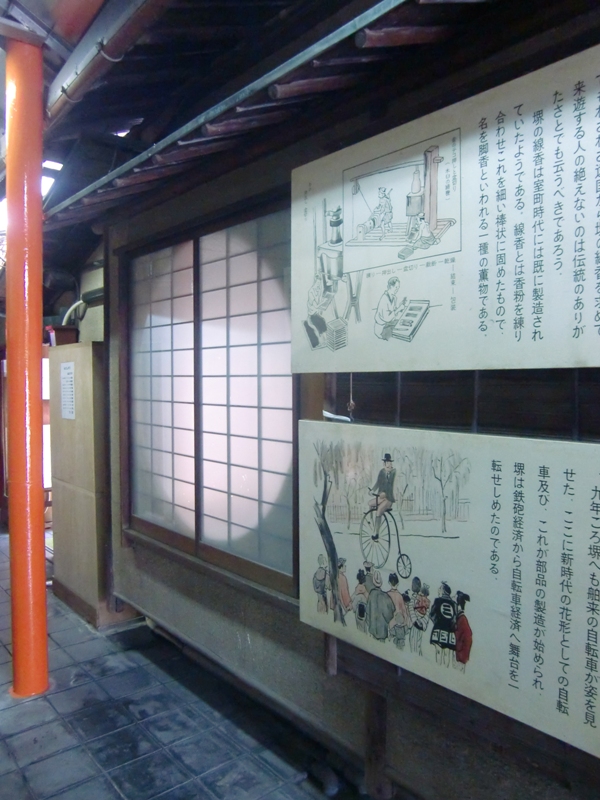 来遊する人の絶えないのは伝統のありが
たさとでも云うべきであろう。
堺の線香は室町時代には既に製造され
ていたようである。線香とは香粉を練り
合わせこれを細い棒状に固めたもので、
名を脚香といわれる一種の薫物である。
九年ごろ堺へも舶来の自転車が姿を見
せた。ここに新時代の花形としての自転
車及び、これが部品の製造が始められ、
堺は鉄砲経済から自転車経済へ舞台を一
転せしめたのである。